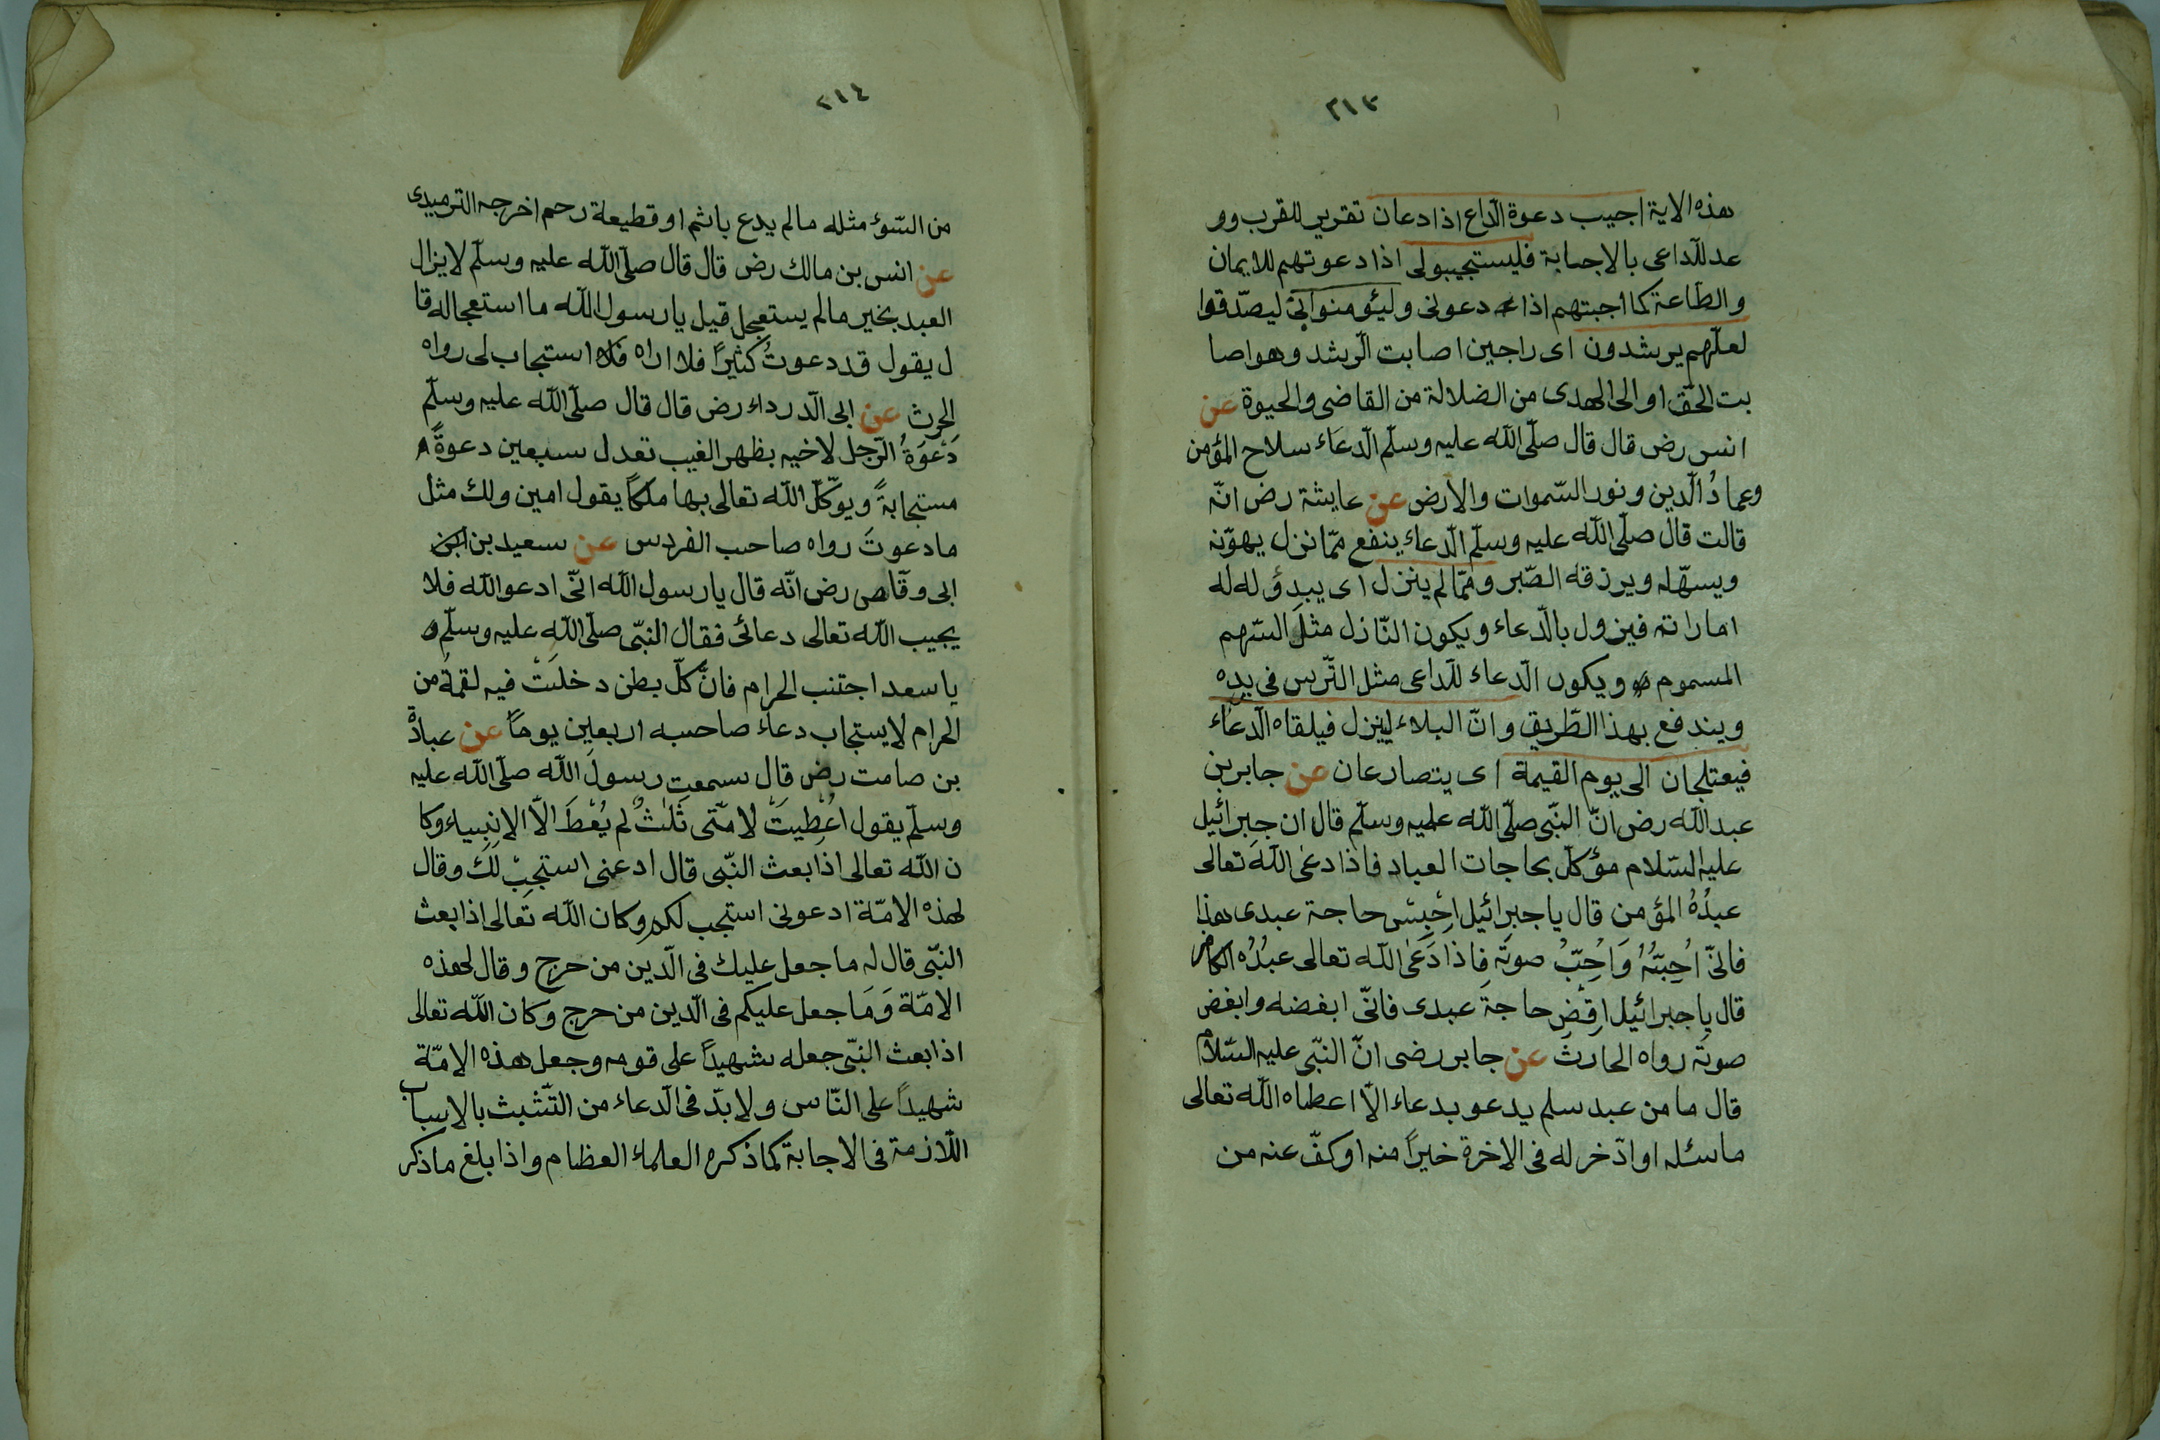 ٢١٣
هذه الاية اجيب دعوة الدّاع اذا دعان تقرير للقرب وو
عد للدّاعى بالاجابة فليستجيبولى اذا دعوتهم للايمان
والطّاعة كما اجبتهم اذا دعونى وليؤمنوا بى ليصدّقوا
لعلّهم يرشدون اى راجين اصابت الرّشد وهو اصا
بت الحقّ او الى الهدى من الضلالة من القاضى والحيوة عن
انس رض قال قال صلّى اللّه عليه وسلّم الدّعاء سلاح المؤمن
وعمادُ الدّين ونور السّموات والارض عن عايشة رض انّه
قالت قال صلّى اللّه عليه وسلّم الدّعاء ينفع ممّا نزل يهوّنه
ويسهّله ويرزقه الصّبر وممّا لم ينزل اى يبدؤ له له
اماراته فيزول بالدّعاء ويكون النّازل مثل السّهم
المسموم ويكون الدّعاء للدّاعى مثل التّرس فى يده
ويندفع بهذا الطّريق وانّ البلاء لينزل فيلقاه الدّعاء
فيعتلجان الى يوم القيمة اى يتصارعان عن جابر بن
عبد اللّه رض انّ النّبى صلّى اللّه عليه وسلّم قال ان جبرائيل
عليه السّلام مؤكّل بحاجات العباد فاذا دعى اللّه تعالى
عبدُهُ المؤمن قال يا جبرائيل احْبِسْ حاجة عبدى هذا
فانّى اُحِبّهُ وَاُحِبّ صوته فاذا دَعَى اللّه تعالى عبدُهُ الكافر
قال يا جبرائيل اقْضِ حاجة عبدى فانّى ابغضه وابغض
صوته رواه الحارث عن جابر رضى انّ النّبى عليه السّلام
قال ما من عبد سلم يدعو بدعاء الّا اعطاه اللّه تعالى
ماسئله او ادّخر له فى الاخرة خيرًا منه او كفّ عنه من
٢١٤
من السّوء مثله مالم يدع باثم او قطيعة رحم اخرجه الترميدى
عن انس بن مالك رض قال قال صلّى اللّه عليه وسلّم لا يزال
العبد بخير مالم يستعجل قيل يا رسول اللّه ما استعجاله قا
ل يقول قد دعوتُ كثيرًا فلا اراه فلا استجاب لى رواه
الحرث عن ابى الدّرداء رض قال قال صلّى اللّه عليه وسلّم
دَعْوَةُ الرّجل لاخيه بظهر الغيب تعدل سبعين دعوةً
مستجابةً ويوكّل اللّه تعالى بها ملكًا يقول امين ولك مثل
ما دعوتَ رواه صاحب الفردس عن سعيد بن
ابى وقّاص رض انّه قال يا رسول اللّه انّى ادعو اللّه فلا
يجيب اللّه تعالى دعائى فقال النبّى صلّى اللّه عليه وسلّم
يا سعد اجتنب الحرام فانّ كلّ بطن دخلتْ فيه لقمةٌ من
الحرام لا يستجاب دعاء صاحبه اربعين يومًا عن عبادة
بن صامت رض قال سمعت رسول اللّه صلّى اللّه عليه
وسلّم يقول اُعْطِيَتْ لامّتى ثَلٰثٌ لم يُعْطَ الّا الانبياء وكا
ن اللّه تعالى اذا بعث النّبى قال ادعنى استجبْ لكَ وقال
لهذه الامّة ادعونى استجب لكم وكان اللّه تعالى اذا بعث
النّبى قال له ما جعل عليك فى الدّين من حرج وقال لهذه
الامّة وَمَا جعل عليكم فى الدّين من حرج وكان اللّه تعالى
اذا بعث النّبى جعله شهيدًا على قومه وجعل هذه الامّة
شهيدًا على النّاس ولا بدّ فى الدّعاء من التّشبث بالاسباب
اللّازمة فى الاجابة كما ذكره العلماء العظام واذا بلغ ما ذكر